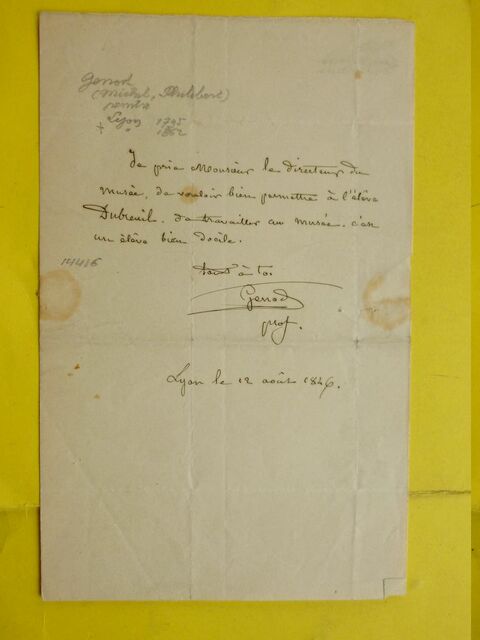 Genod
(Michel, Philibert)
peintre
Lyon 1795
+ " 1862
Je prie Monsieur le directeur du
musée, de vouloir bien permettre à l'élève
Dubreuil, de travailler au musée, c'est
un élève bien docile.
14416
tout à toi
Genod
prof.
Lyon le 12 août 1846.